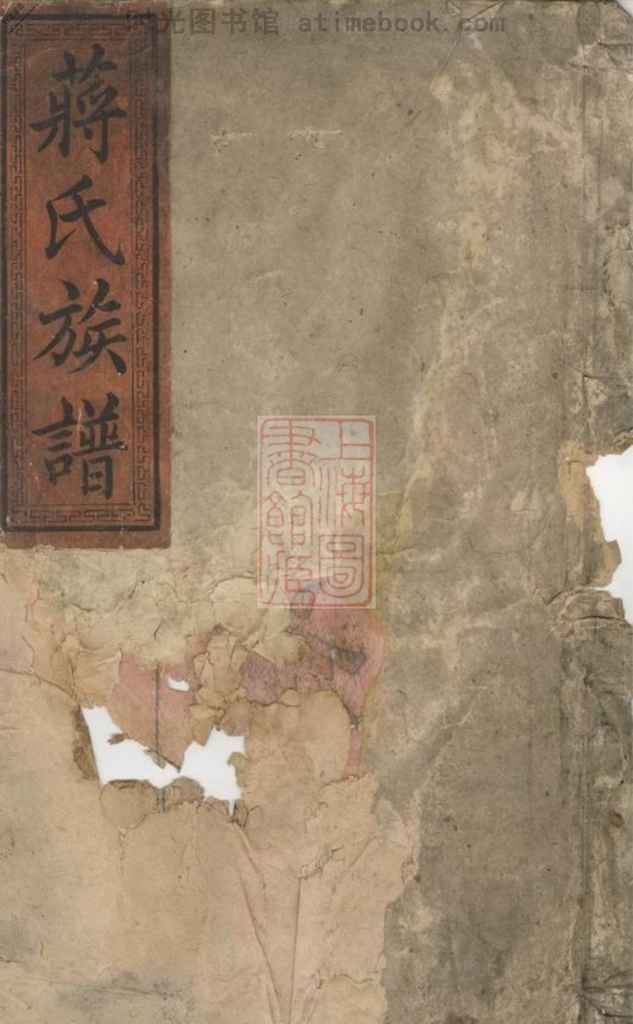 时光图书馆 atimebook.com
蔣氏族譜
上海圖
書館藏